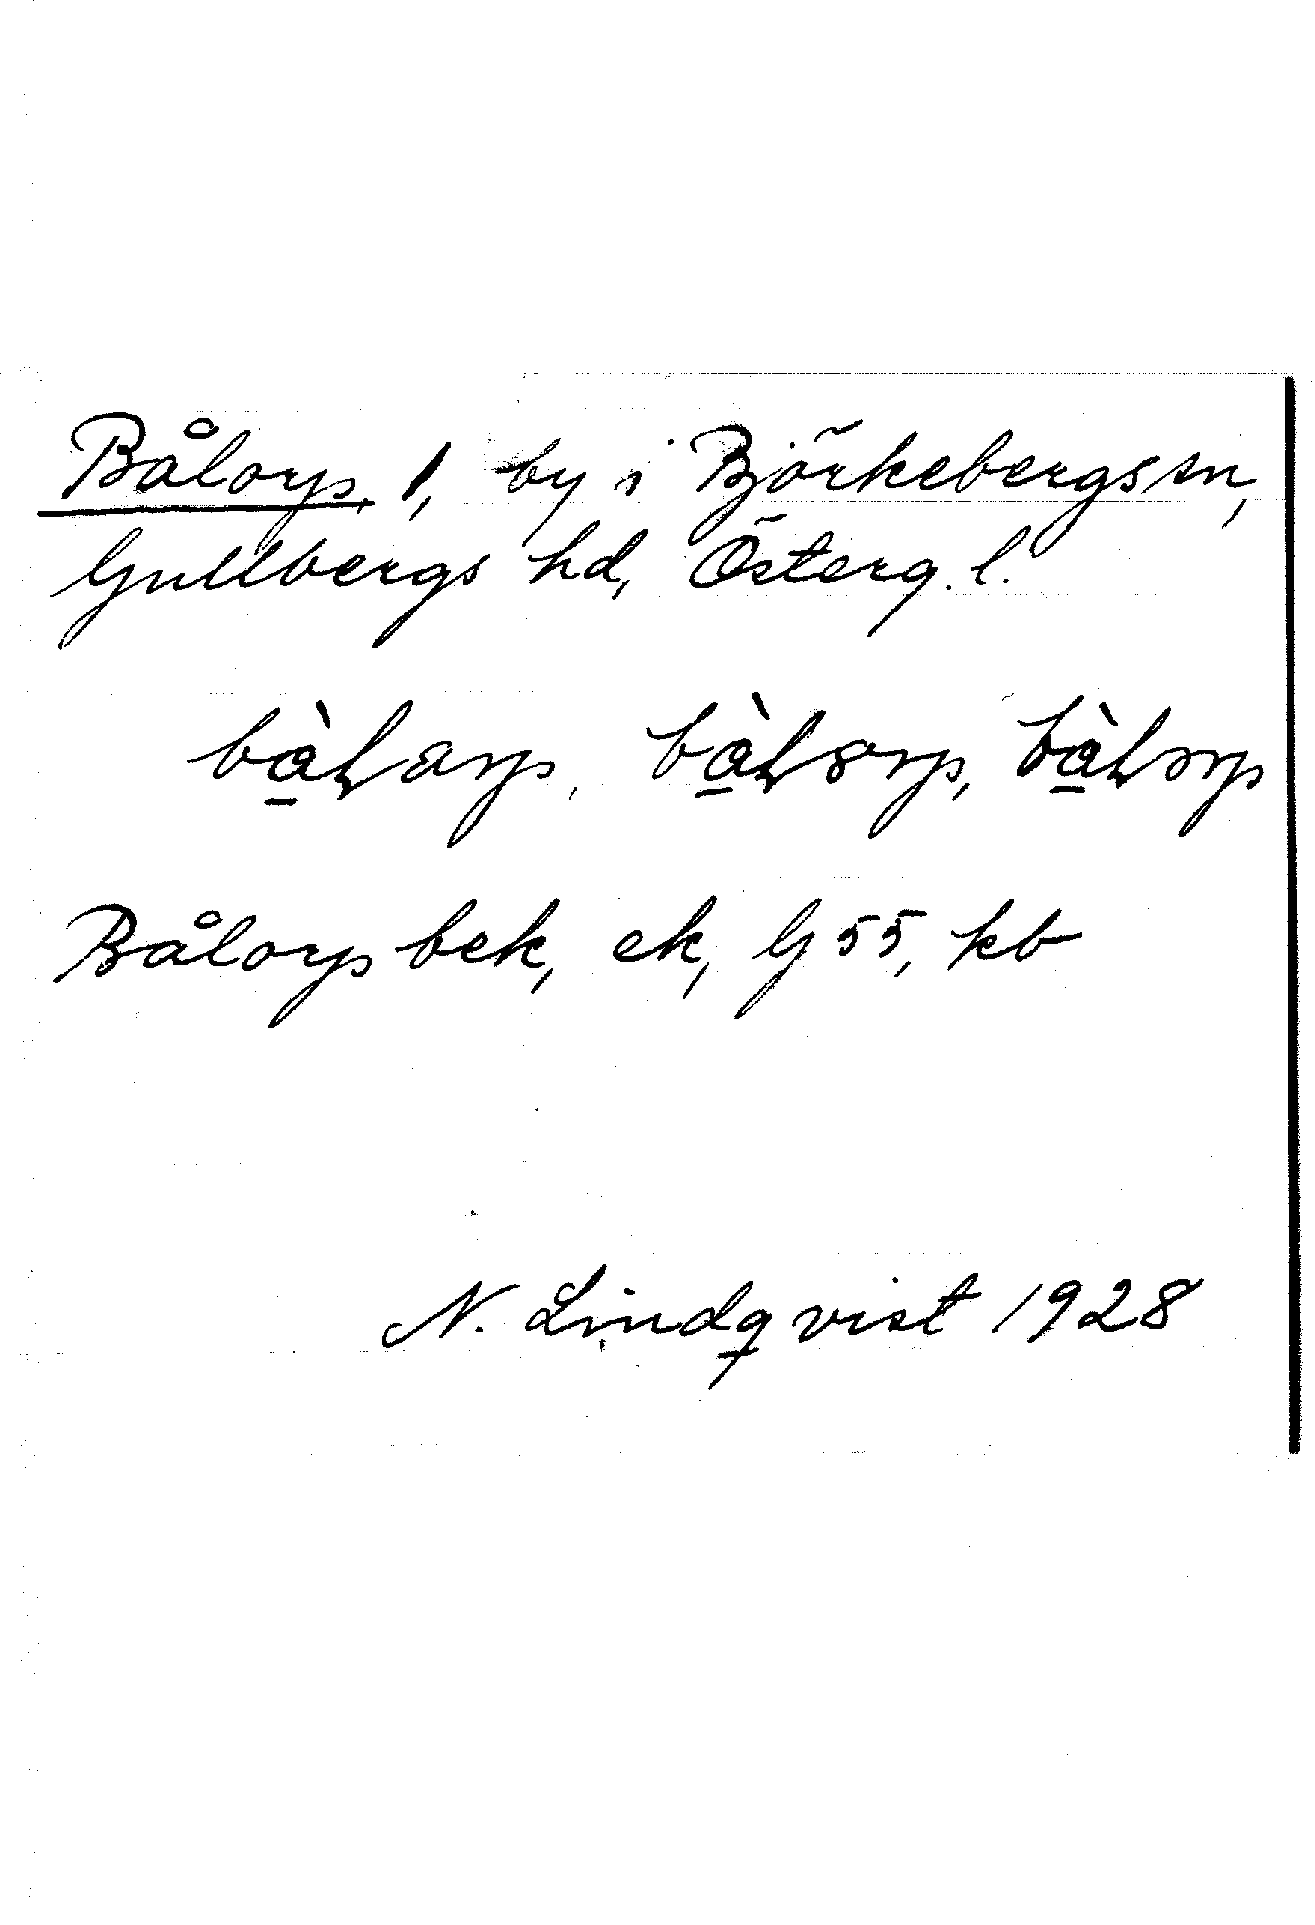 Bålorp 1, by i Björkebergs sn,
Gullbergs hd, Österg. l.
Bålorp bek, ek, G 55, kb
N. Lindqvist 1928